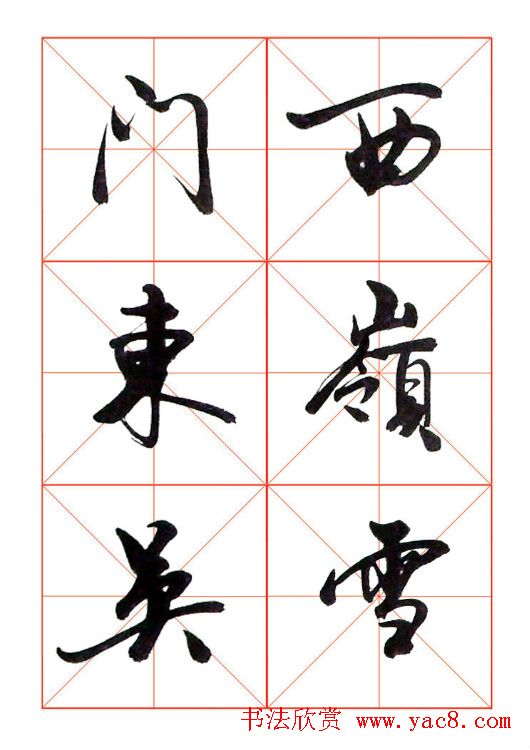 西嶺雪
门東吴
书法欣赏 www.yac8.com